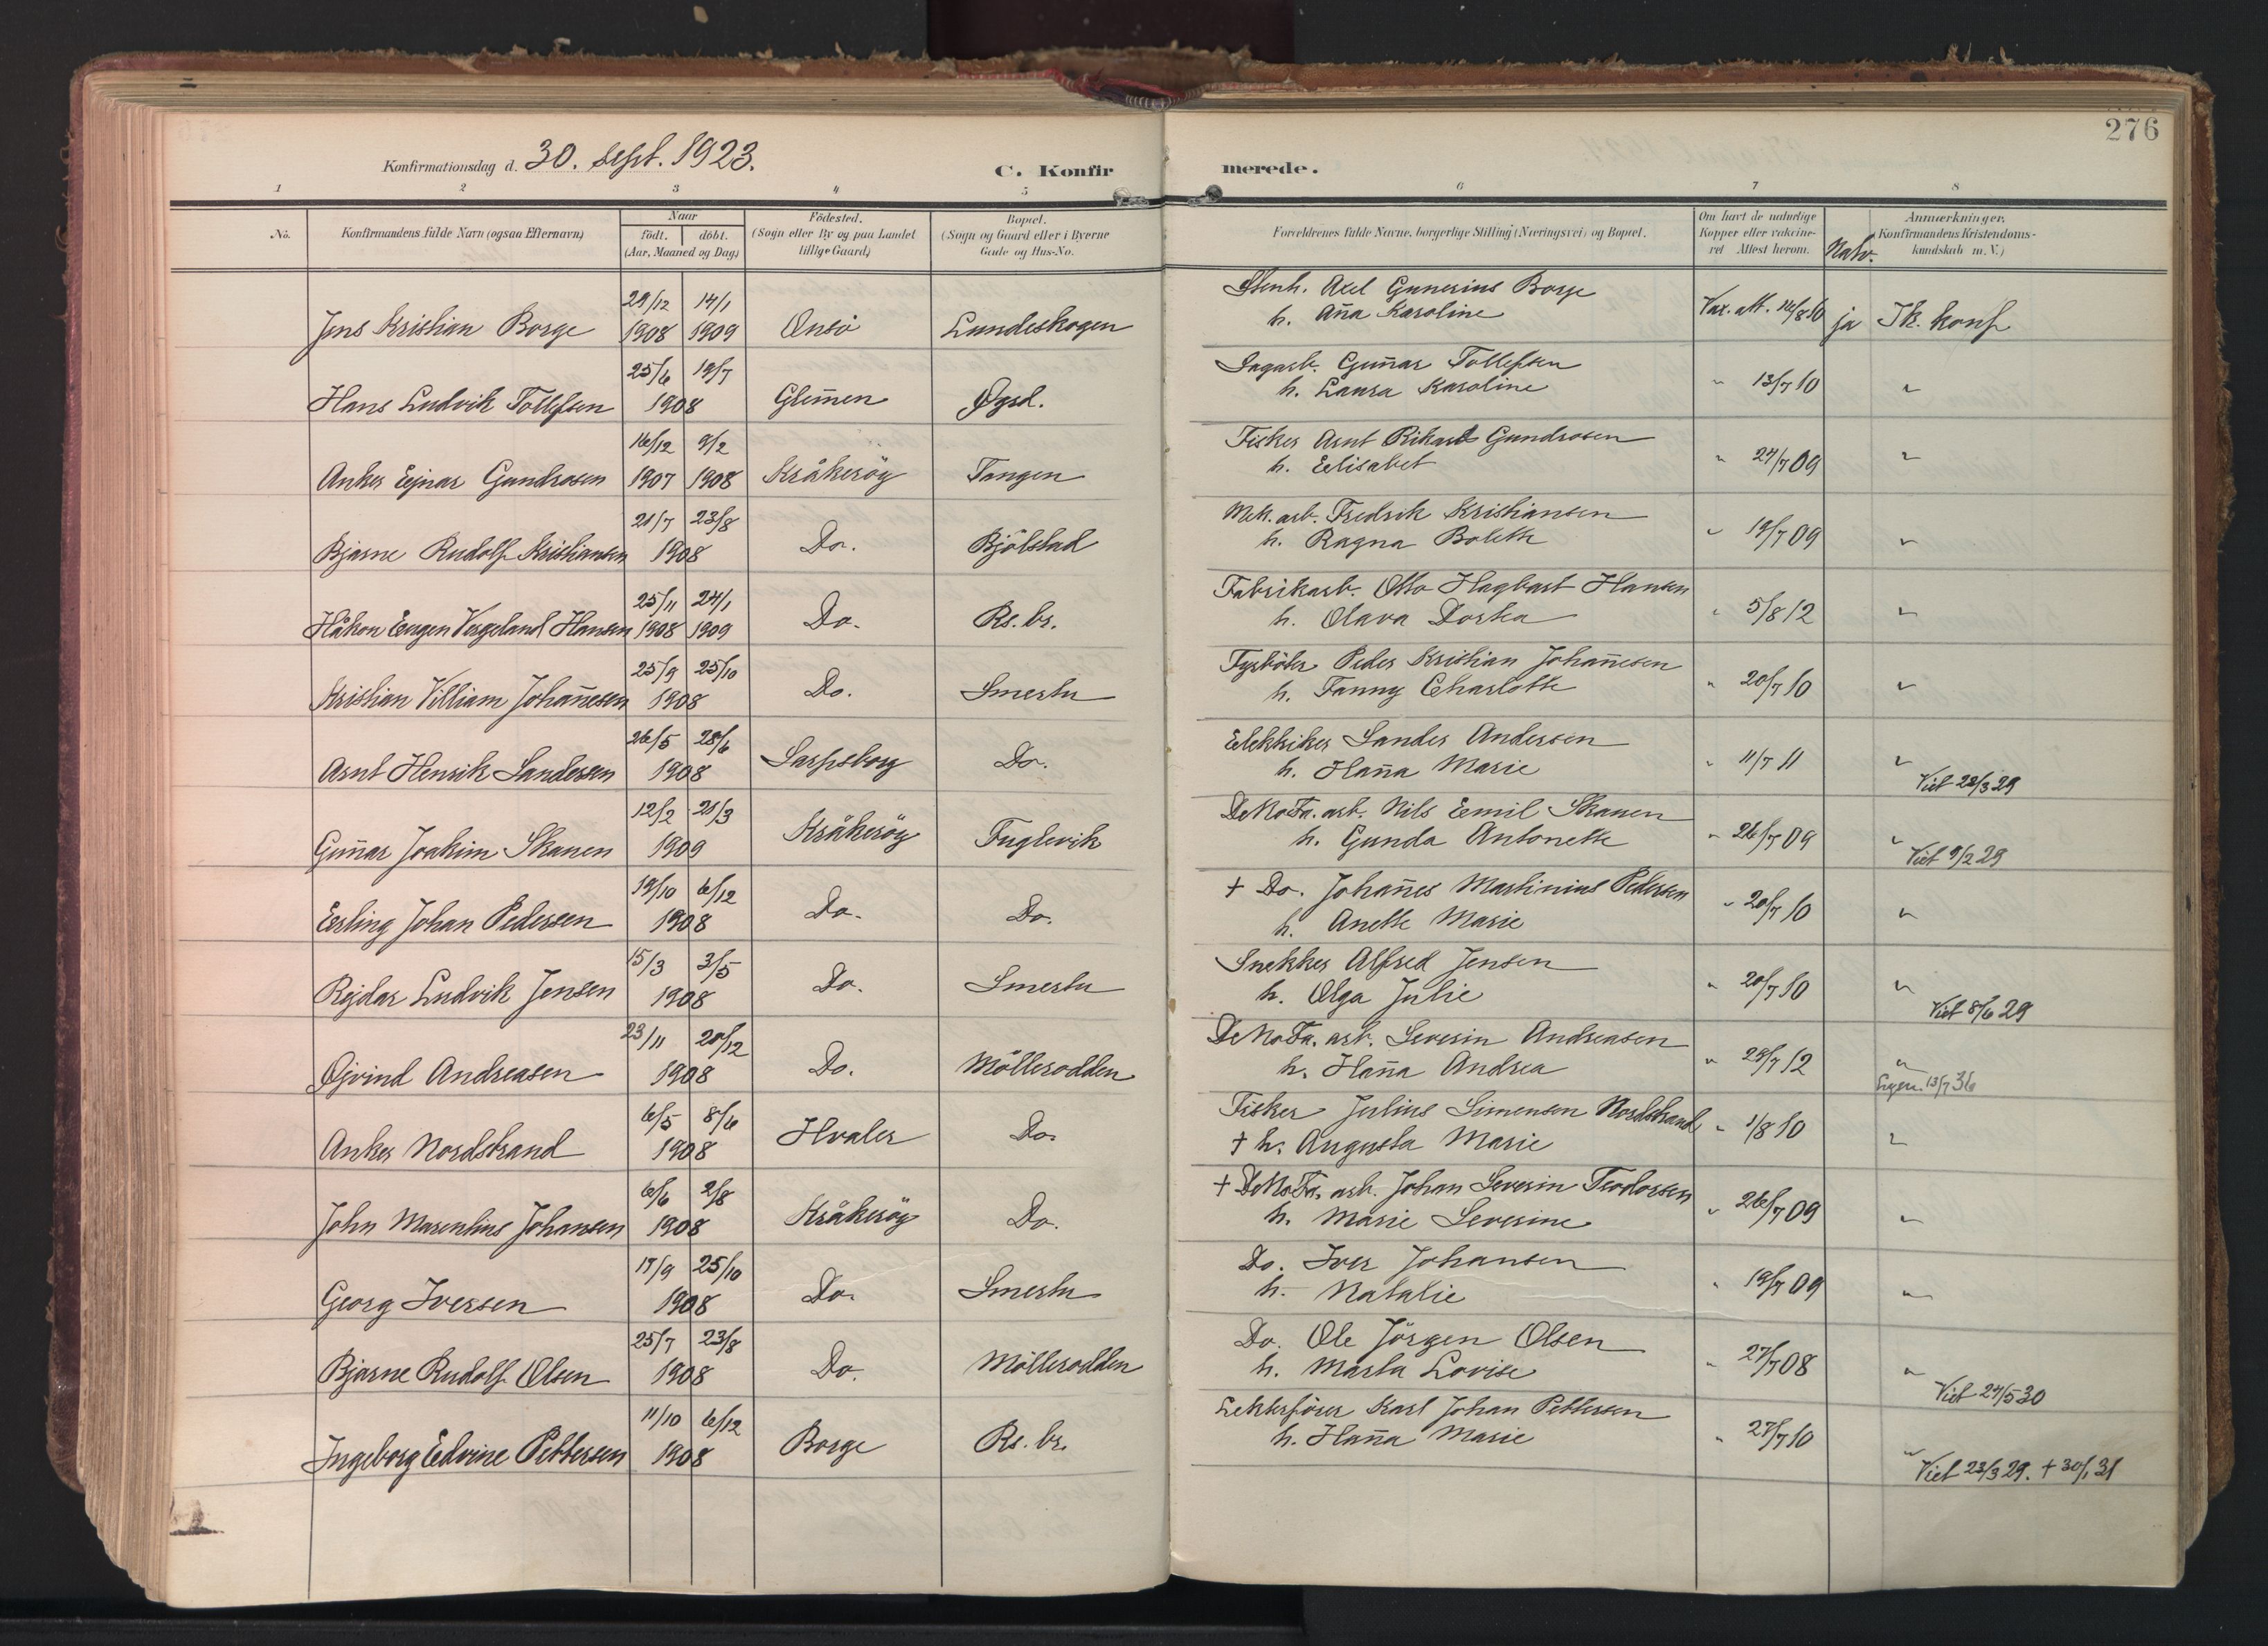 276
Konfirmationsdag d. 30. sept. 1923.
C. Konfirmerede.
1 2 3 4 5 6 7 8
No. Konfirmandens fulde Navn (ogsaa Efternavn) Naar födt. döbt. (Aar, Maaned og Dag.) Födested. (Sogn eller By og paa Landet tillige Gaard.) Bopæl. (Sogn og Gaard eller i Byerne Gade og Hus-No. Forældrenes fulde Navne, borgerlige Stilling (Næringsvei) og Bopæl. Om havt de naturlige Kopper eller vaccineret Attest herom. Natv. Anmærkninger. Konfirmandens Kristendomskundskab m. V.)
29/12 14/1 Stenh. Axel Gunerius Borge
Jens Kristian Borge 1908 1909 Onsö Lundeskogen h. Aña Karoline Vax. att. 16/8 10 ja Ik. konf
25/6 19/7 Sagarb. Guñar Tollefsen
Hans Ludvik Tollefsen 1908 Glem̄en Øgsd. h. Laura Karoline " 13/7 10 "
16/12 9/2 Fisker Arnt Rikard Gundrosen
Anker Ejnar Gundrosen 1907 1908 Kråkeröy Tangen h. Elisabet " 24/7 09 "
21/7 23/8 Mek. arb. Fredrik Kristiansen
Bjarne Rudolf Kristiansen 1908 Do. Bjölstad h. Ragna Bolette " 19/7 09 "
25/11 24/1 Fabrikarb. Otto Hagbart Hansen
Håkon Eugen Vergeland Hansen 1908 1909 Do. Rs. br. h. Olava Dortea " 5/8 12 "
25/9 25/10 Fyrböter Peder Kristian Johañesen
Kristian Villiam Johañesen 1908 Do. Smertu h. Fanny Charlotte " 20/7 10 "
26/5 28/6 Elektriker Sander Andersen
Arnt Henrik Sandersen 1908 Sarpsborg Do. h. Haña Marie " 11/7 11 "
Viet 28/3 29
12/2 21/3 DeNoFa. arb. Nils Emil Skauen
Guñar Joakim Skauen 1909 Kråkeröy Fuglevik h. Gunda Antonette " 26/7 09 "
Viet 9/2 29
19/10 6/12 + Do. Johañes Martinius Pedersen
Erling Johan Pedersen 1908 Do. Do. h. Anette Marie " 20/7 10 "
15/3 3/5 Snekker Alfred Jensen
Rejdar Ludvik Jensen 1908 Do. Smertu h. Olga Julie " 20/7 10 "
Viet 8/6 29
23/11 20/12 DeNoFa. arb. Severin Andreasen
Øjvind Andreasen 1908 Do. Möllerodden h. Haña Andrea " 29/7 12 "
13/7 36
6/5 8/6 Fisker Julius Simensen Nordstrand
Anker Nordstrand 1908 Hvaler Do. + h. Augusta Marie " 1/8 10 "
6/6 2/8 + DeNoFa. arb. Johan Severin Teodorsen
John Marentius Johansen 1908 Kråkeröy Do. h. Marie Severine " 26/7 09 "
17/9 25/10 Do. Iver Johansen
Georg Iversen 1908 Do. Smertu h. Natalie " 19/7 09 "
25/7 23/8 Do. Ole Jörgen Olsen
Bjarne Rudolf Olsen 1908 Do. Möllerodden h. Marta Lovise " 27/7 08 "
Viet 24/5 30
11/10 6/12 Lekterförer Karl Johan Pettersen
Ingeborg Edvine Pettersen 1908 Borge Rs. br. h. Haña Marie " 27/7 10 "
Viet 23/3 29. + 30/1 31